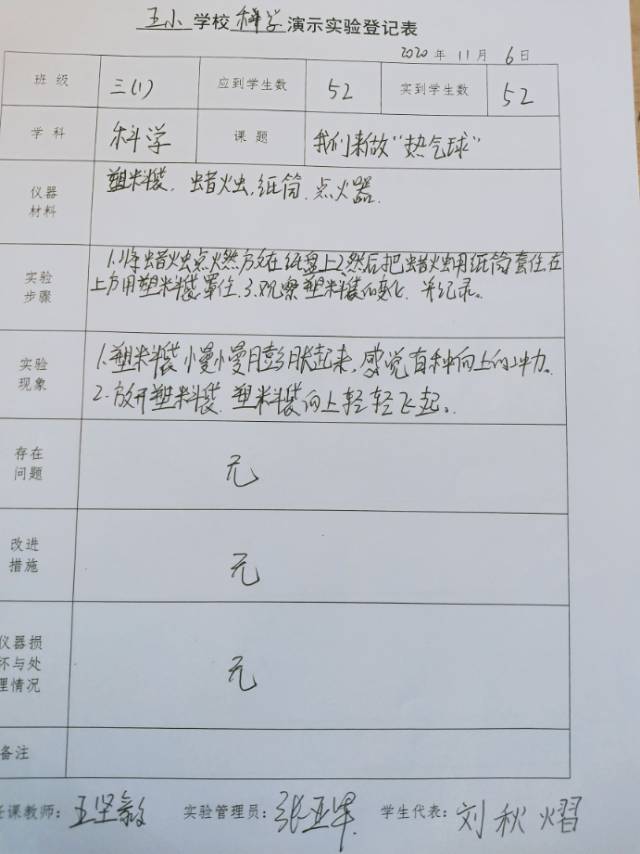 王小学校科学演示实验登记表
2020年11月6日
班级 三(1) 应到学生数 52 实到学生数 52
学科 科学 课题 我们来做“热气球”
仪器材料 塑料袋、蜡烛,纸筒、点火器.
实验步骤 1.将蜡烛点燃放在纸盘上2.然后把蜡烛用纸筒套住在
上方用塑料袋罩住.3.观察塑料袋的变化.并记录。
实验现象 1.塑料袋慢慢膨胀起来,感觉有种向上的冲力.
2.放开塑料袋.塑料袋向上轻轻飞起。
存在问题 无
改进措施 无
仪器损坏与处理情况 无
备注
任课教师:王坚毅 实验管理员:张亚军 学生代表:刘秋熠